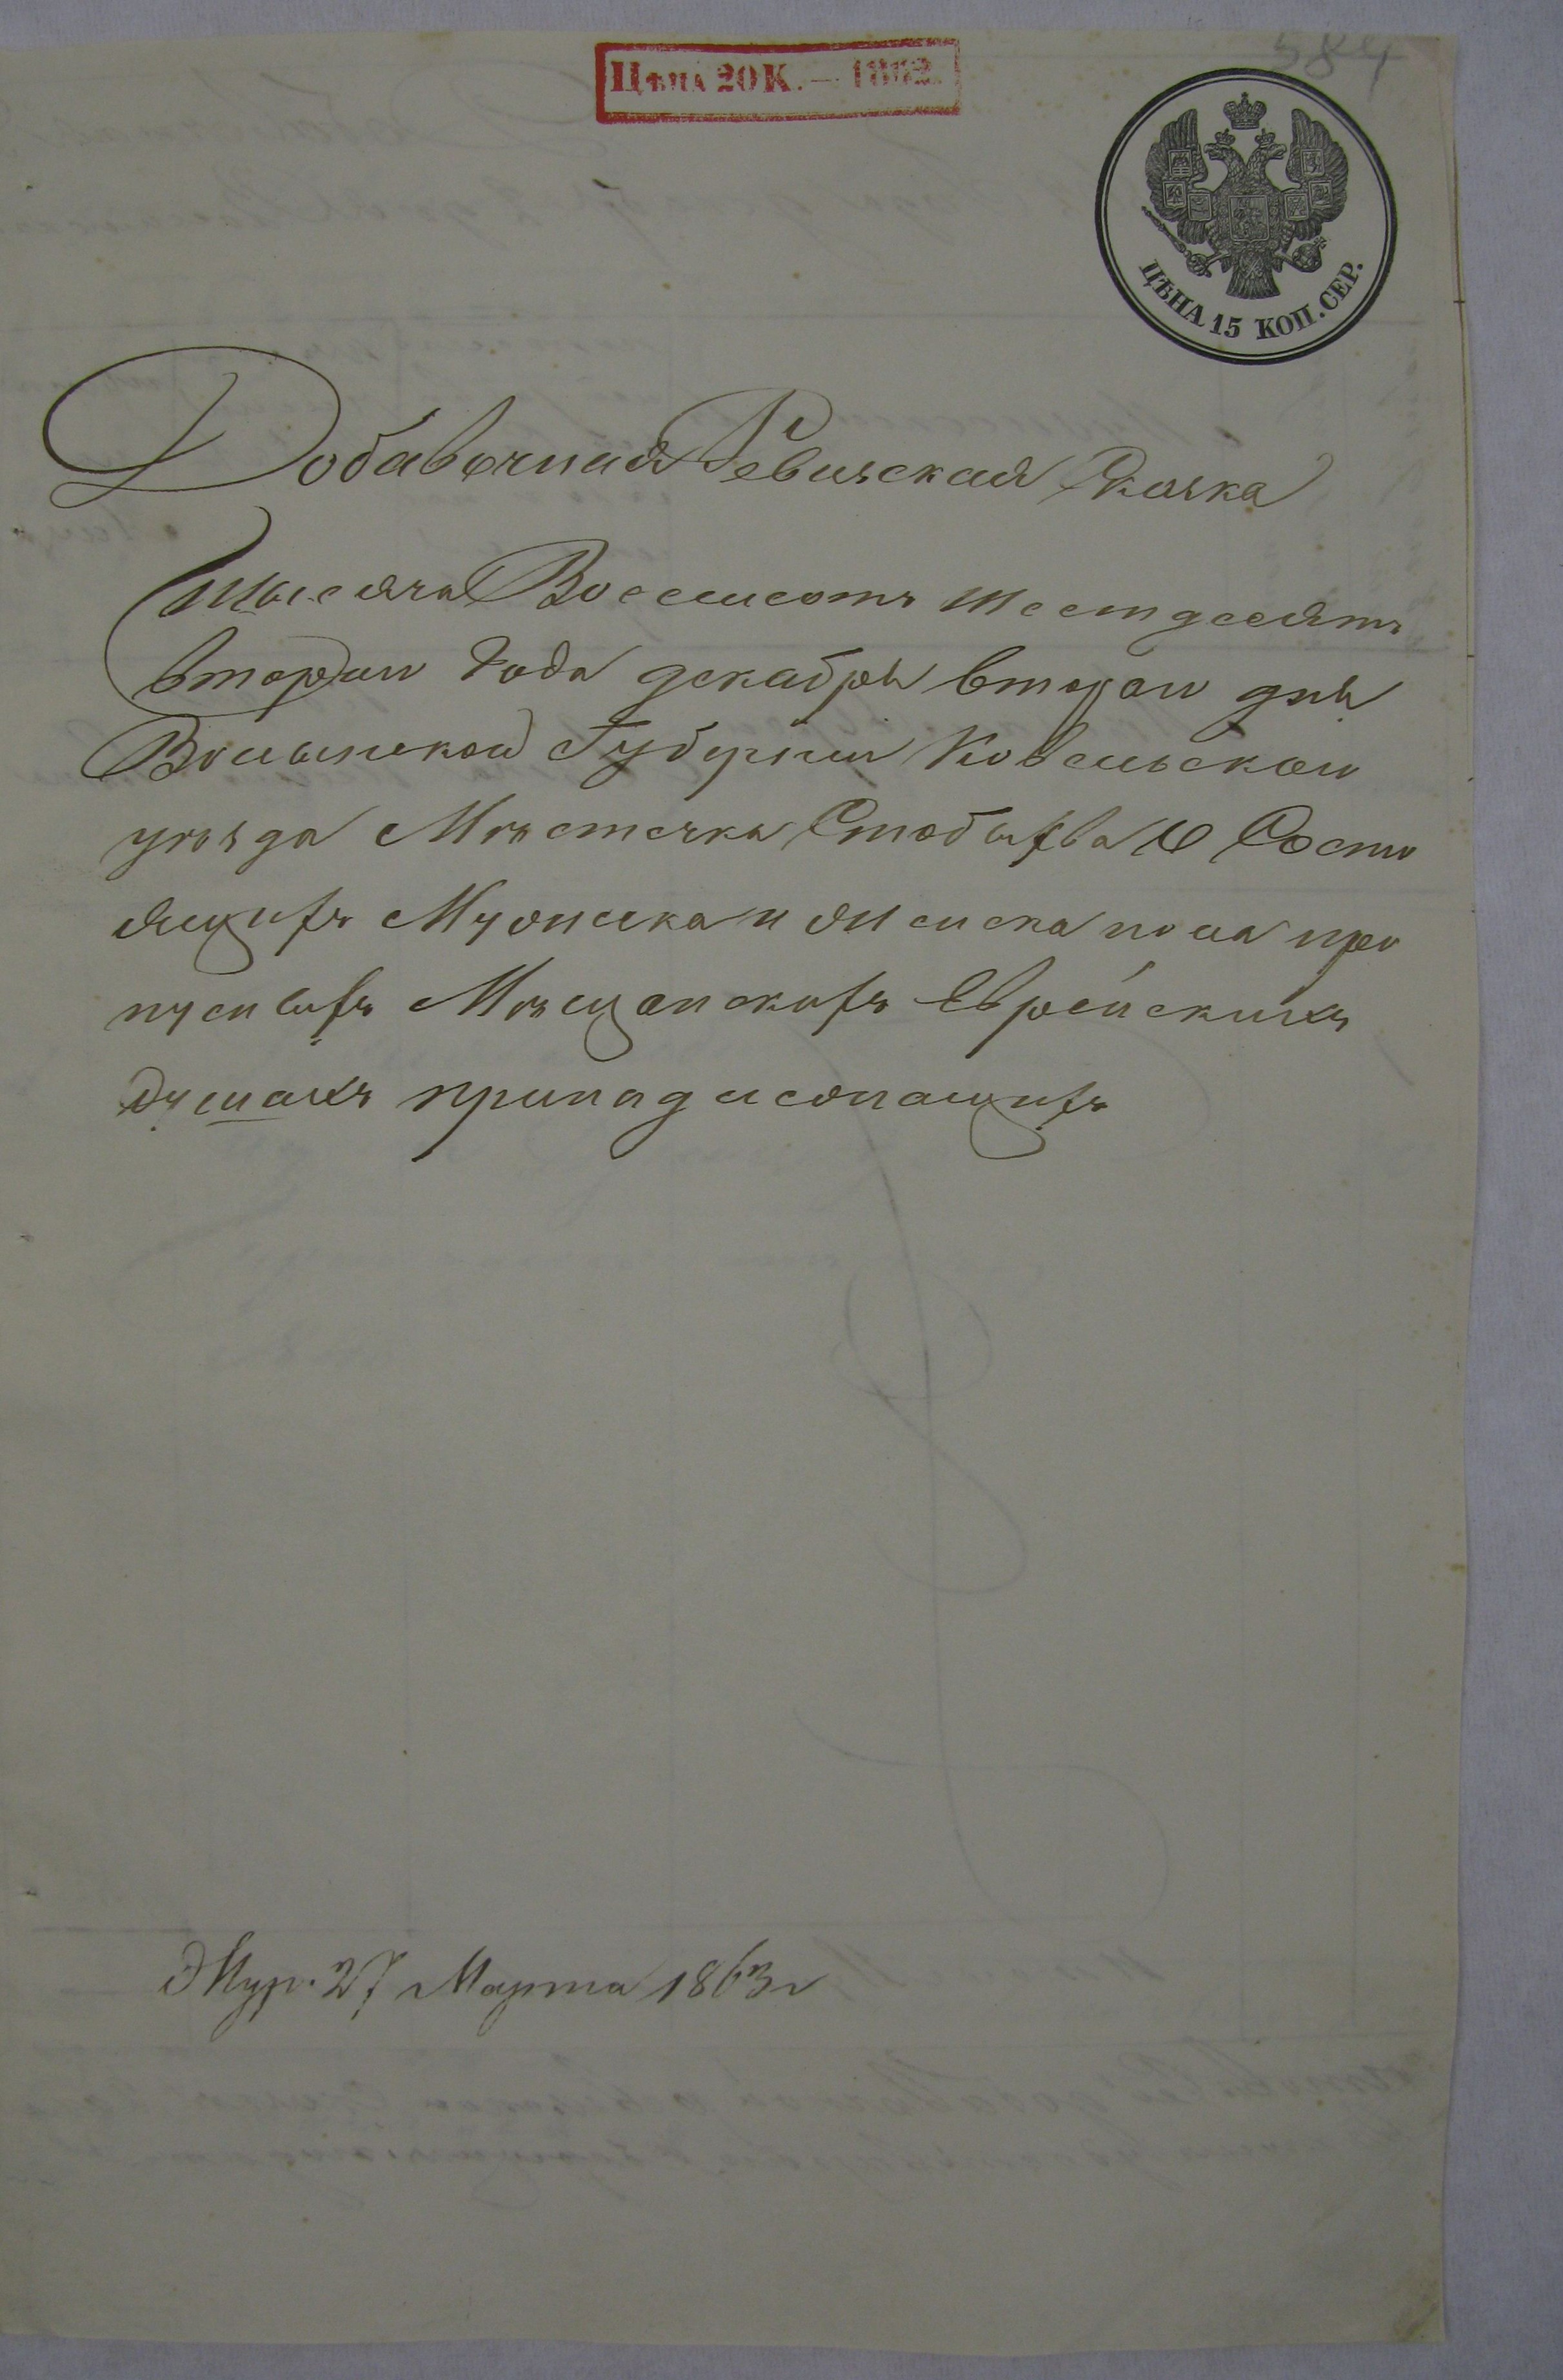 584
ЦѢНА 20 К. — 1862.
ЦѢНА 15 КОП. СЕР.
Добавочная Ревизская Сказка
Тысяча Восемсотъ шестдесятъ
втораи Года декабря втораи дня
Волынской Губернии Ковельскаи
уѣзда Мѣстечка Стобыхва О Состо
ящихъ Мужиска и женска пола про
пусныхъ Мѣщанскихъ Еврейскихъ
душахъ принадлежащихъ
Жур. 27 Марта 1863 г